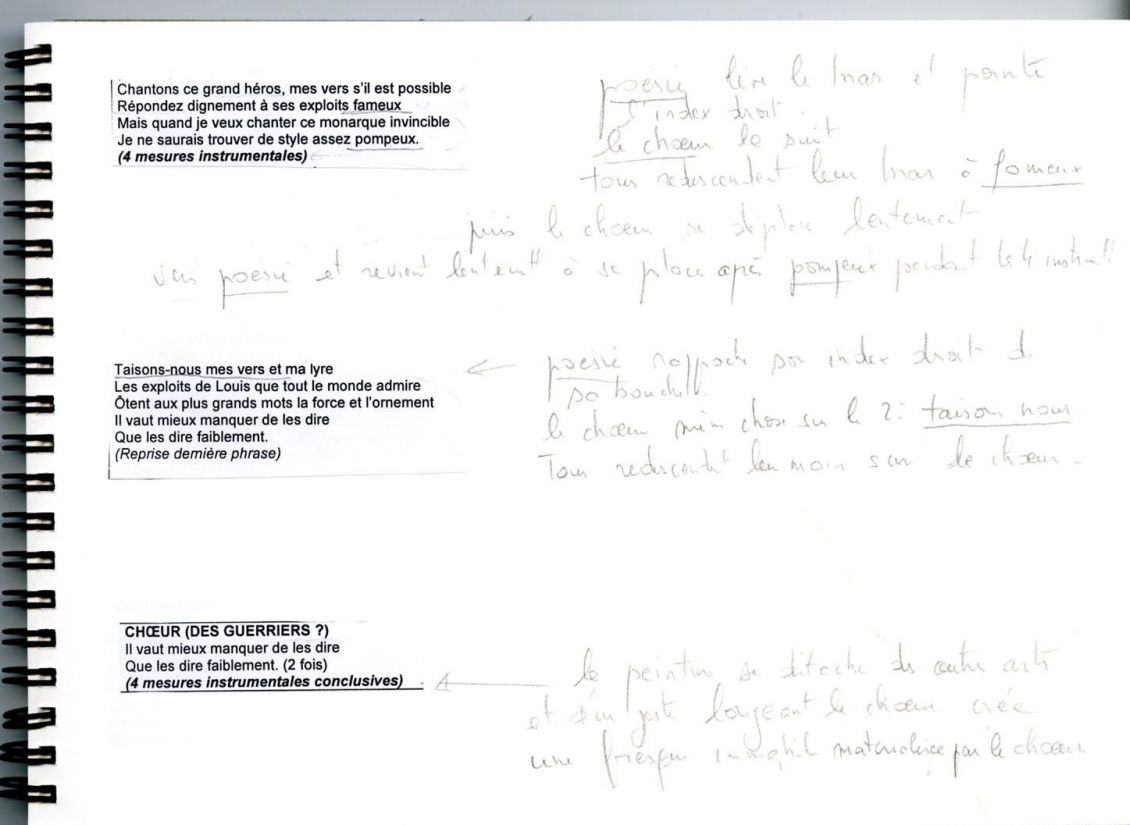 Chantons ce grand héros, mes vers s'il est possible
Répondez dignement à ses exploits fameux
Mais quand je veux chanter ce monarque invincible
Je ne saurais trouver de style assez pompeux.
(4 mesures instrumentales)
poésie lève le bras et pointe
l'index droit.
le chœur le suit
tous redescendent leur bras à fameux
puis le chœur se déplace lentement
vers poésie et revient à sa place après pompeux pendant les 4
Taisons-nous mes vers et ma lyre
Les exploits de Louis que tout le monde admire
Ôtent aux plus grands mots la force et l'ornement
Il vaut mieux manquer de les dire
Que les dire faiblement.
(Reprise dernière phrase)
poésie rapproche son index droit
sa bouche
le chœur même chose sur le 2: taison nous
Tous redescendent leur main sur le chœur.
CHŒUR (DES GUERRIERS ?)
Il vaut mieux manquer de les dire
Que les dire faiblement. (2 fois)
(4 mesures instrumentales conclusives)
la peinture se détache des autres arts
et d'un geste longeant le chœur crée
une fresque materialisée par le chœur